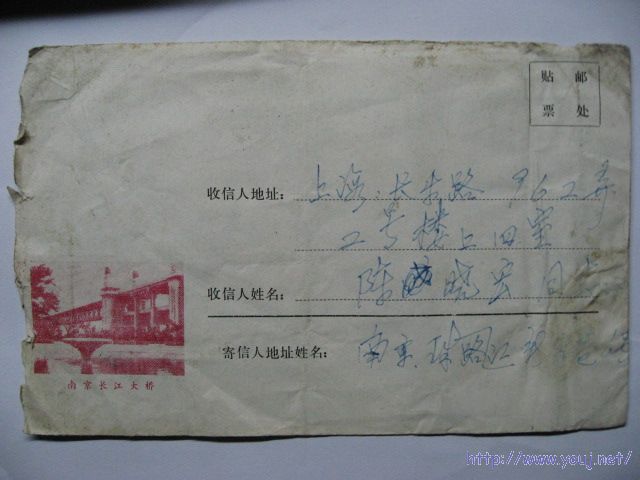 贴 邮
票 处
收信人地址：上海.长乐路 762弄
2号楼上旧室
收信人姓名：陈晓宏同志
寄信人地址姓名：南京.珠江路
南京长江大桥
http://www.youj.net/